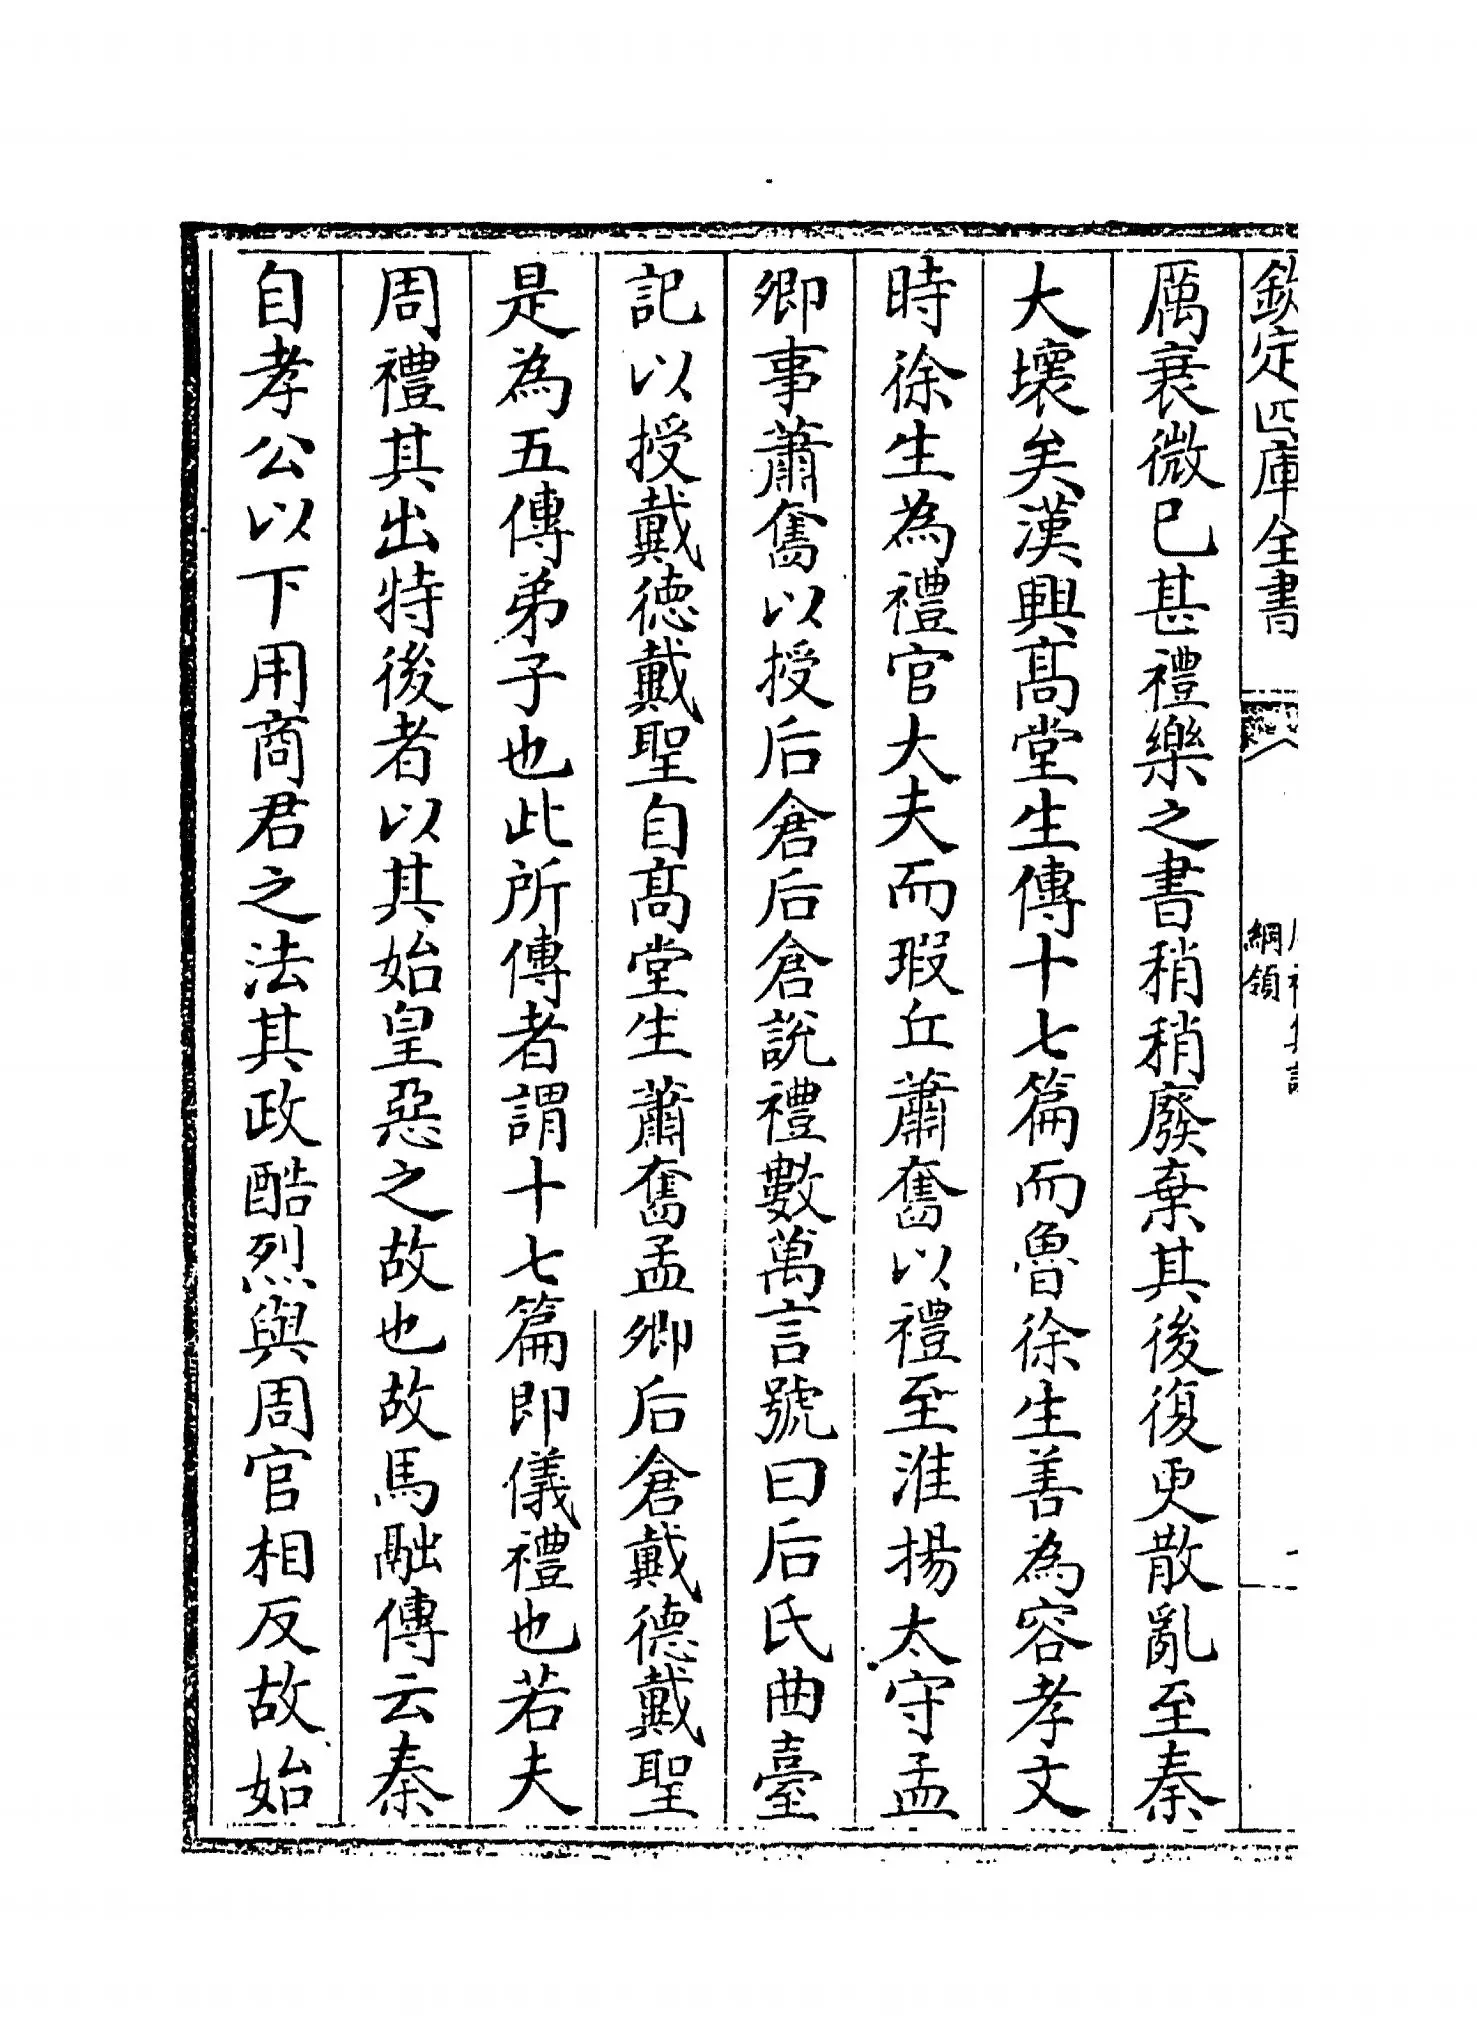 欽定四庫全書
綱領
厲衰微已甚禮樂之書稍稍廢棄其後復更散亂至秦
大壞矣漢興高堂生傳十七篇而魯徐生善為容孝文
時徐生為禮官大夫而瑕丘蕭奮以禮至淮揚太守孟
卿事蕭奮以授后倉后倉說禮數萬言號曰后氏曲臺
記以授戴德戴聖自高堂生蕭奮孟卿后倉戴德戴聖
是為五傳弟子也此所傳者謂十七篇即儀禮也若夫
周禮其出特後者以其始皇惡之故也故馬融傳云秦
自孝公以下用商君之法其政酷烈與周官相反故始